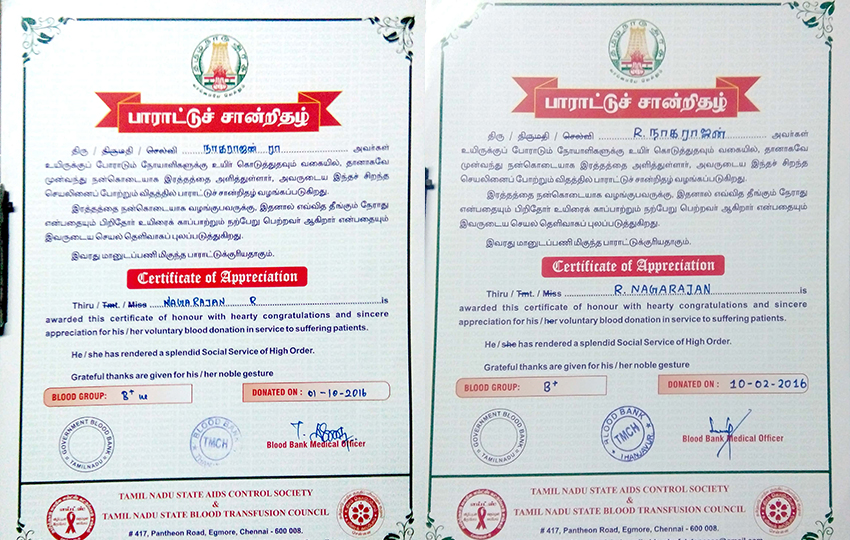 பாராட்டுச் சான்றிதழ்
திரு / திருமதி / செல்வி நாகராஜன் ரா அவர்கள்
உயிருக்குப் போராடும் நோயாளிகளுக்கு உயிர் கொடுத்துதவும் வகையில், தானாகவே
முன்வந்து நன்கொடையாக இரத்தத்தை அளித்துள்ளார், அவருடைய இந்தச் சிறந்த
செயலினைப் போற்றும் விதத்தில் பாராட்டுச் சான்றிதழ் வழங்கப்படுகிறது.
இரத்தத்தை நன்கொடையாக வழங்குபவருக்கு, இதனால் எவ்வித தீங்கும் நேராது
என்பதையும் பிறிதோர் உயிரைக் காப்பாற்றும் நற்பேறு பெற்றவர் ஆகிறார் என்பதையும்
இவருடைய செயல் தெளிவாகப் புலப்படுத்துகிறது.
இவரது மானுடப்பணி மிகுந்த பாராட்டுக்குரியதாகும்.
Certificate of Appreciation
Thiru / Tmt. / Miss NAGARAJAN R is
awarded this certificate of honour with hearty congratulations and sincere
appreciation for his / her voluntary blood donation in service to suffering patients.
He / she has rendered a splendid Social Service of High Order.
Grateful thanks are given for his / her noble gesture
BLOOD GROUP: B+ DONATED ON : 01-10-2016
GOVERNMENT BLOOD BANK TAMILNADU
BLOOD BANK TMCH
Blood Bank Medical Officer
TAMIL NADU STATE AIDS CONTROL SOCIETY
&
TAMIL NADU STATE BLOOD TRANSFUSION COUNCIL
# 417, Pantheon Road, Egmore, Chennai - 600 008.
பாராட்டுச் சான்றிதழ்
திரு / திருமதி / செல்வி R. நாகராஜன் அவர்கள்
உயிருக்குப் போராடும் நோயாளிகளுக்கு உயிர் கொடுத்துதவும் வகையில், தானாகவே
முன்வந்து நன்கொடையாக இரத்தத்தை அளித்துள்ளார், அவருடைய இந்தச் சிறந்த
செயலினைப் போற்றும் விதத்தில் பாராட்டுச் சான்றிதழ் வழங்கப்படுகிறது.
இரத்தத்தை நன்கொடையாக வழங்குபவருக்கு, இதனால் எவ்வித தீங்கும் நேராது
என்பதையும் பிறிதோர் உயிரைக் காப்பாற்றும் நற்பேறு பெற்றவர் ஆகிறார் என்பதையும்
இவருடைய செயல் தெளிவாகப் புலப்படுத்துகிறது.
இவரது மானுடப்பணி மிகுந்த பாராட்டுக்குரியதாகும்.
Certificate of Appreciation
Thiru / Tmt. / Miss R. NAGARAJAN is
awarded this certificate of honour with hearty congratulations and sincere
appreciation for his / her voluntary blood donation in service to suffering patients.
He / she has rendered a splendid Social Service of High Order.
Grateful thanks are given for his / her noble gesture
BLOOD GROUP: B+ DONATED ON : 10-02-2016
GOVERNMENT BLOOD BANK TAMILNADU
BLOOD BANK TMCH THANJAVUR
Blood Bank Medical Officer
TAMIL NADU STATE AIDS CONTROL SOCIETY
&
TAMIL NADU STATE BLOOD TRANSFUSION COUNCIL
# 417, Pantheon Road, Egmore, Chennai - 600 008.